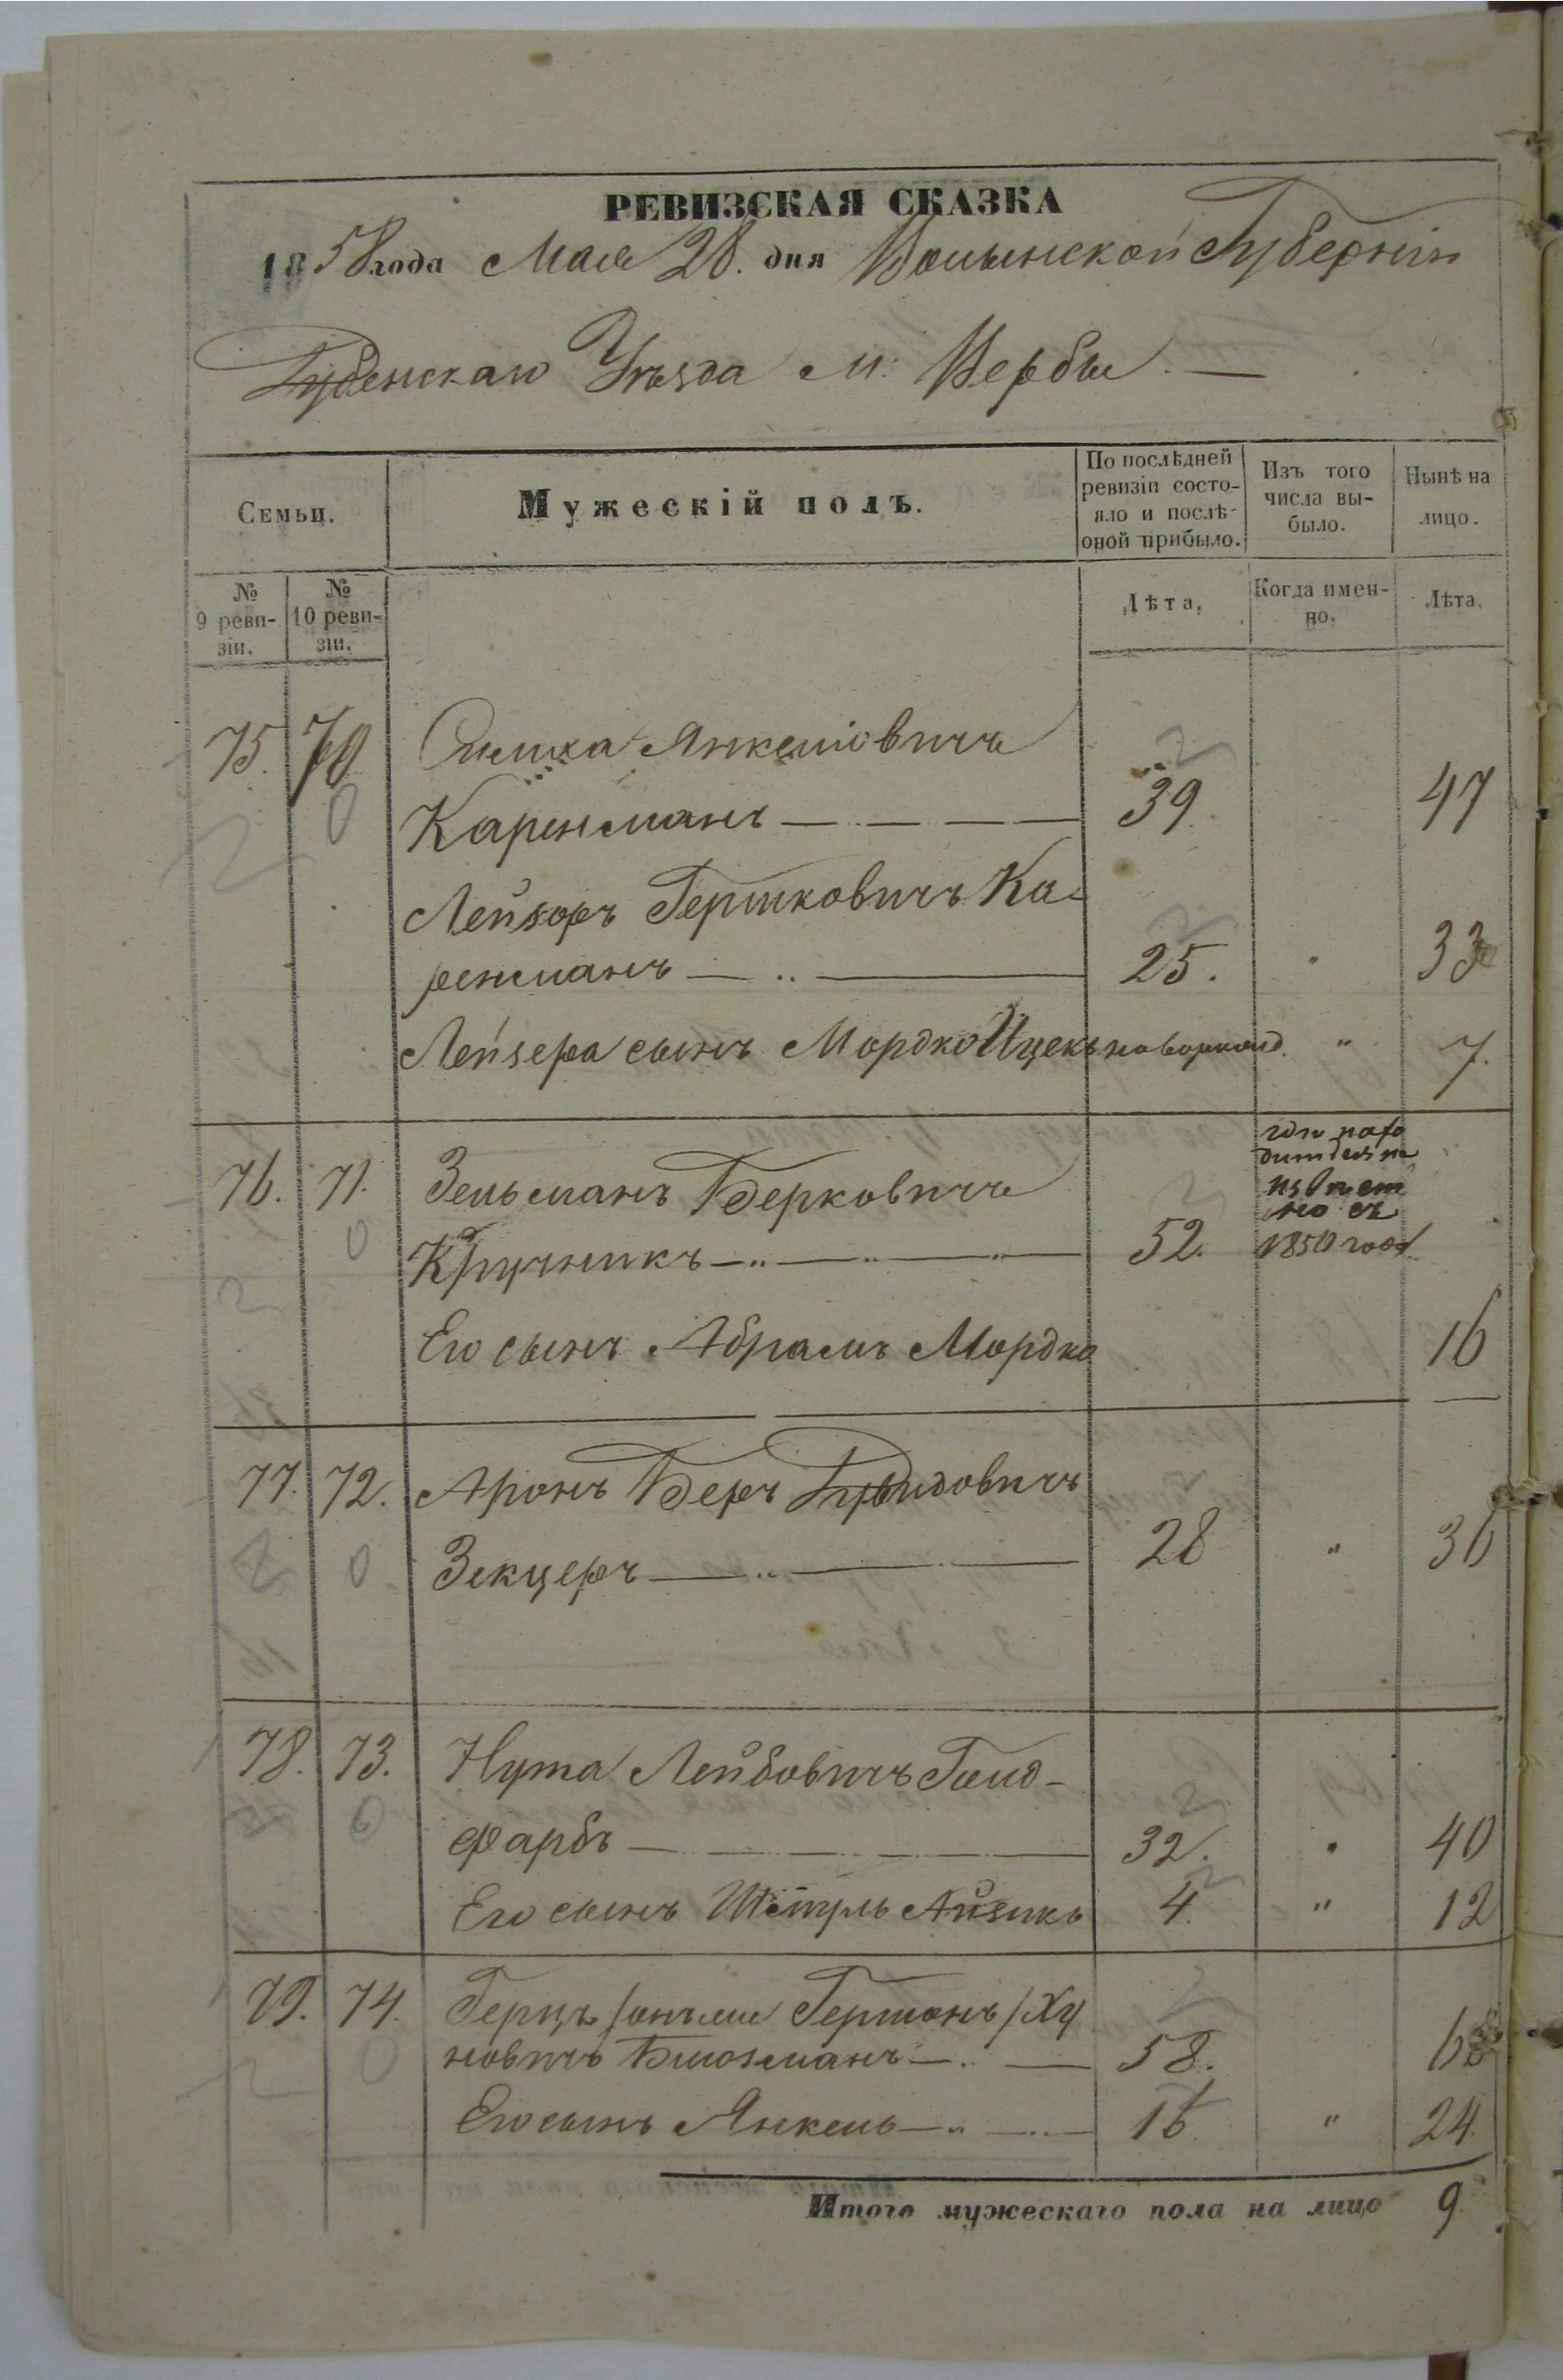 РЕВИЗСКАЯ СКАЗКА
1858 года Мая 28. дня Волынской Губерніи
Дубенскаго Уѣзда м. Вербы. —
Семьи.
Мужескій полъ.
По послѣдней ревизіи состояло и послѣ оной прибыло.
Изъ того числа выбыло.
Нынѣ на лицо.
№ 9 ревизіи.
№ 10 ревизіи.
Лѣта,
Когда именно,
Лѣта,
75. 70 Симха Янкеліовичъ
Каренманъ — 39. 47
Лейзоръ Гершковичъ Ка-
ренманъ — 25. " 33
Лейзера сынъ Мордко Ицекъ новорожд. " 7.
76. 71. Зельманъ Берковичъ
Кручникъ — 52. гдѣ нахо
дится не
извѣст
но съ
1850 года
Его сынъ Абрамъ Мордко 16
77. 72. Аронъ Беръ Дувидовичъ
Зекцеръ — 28 " 36
78. 73. Нута Лейбовичъ Голд-
фарбъ — 32. " 40
Его сынъ Шмуль Айзикъ 4. " 12
79. 74. Герцъ /онъ же Гершонъ/
новичъ — 58.
Его сынъ Янкель — 16 " 24.
Итого мужескаго пола на лицо 9.